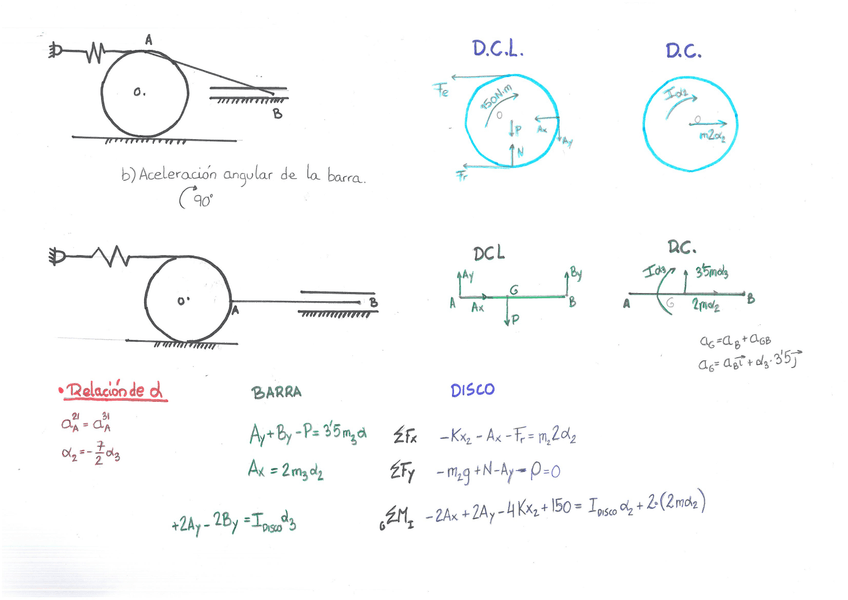 A
O.
B
D.C.L.
Fe
150N·m
O
P
Ax
Ay
N
Fr
D.C.
Iα₂
O
m2α₂
b) Aceleración angular de la barra.
90°
O·
A
B
DCL
Ay
By
A
Ax
G
B
P
D.C.
Iα₃
3'5mα₃
A
G
B
2mα₂
a_G=a_B+a_GB
a_G=a_B i+α₃·3'5 j
• Relación de α
a_A²¹=a_A³¹
α₂=-7/2 α₃
BARRA
Ay+By-P=3'5m₃α
Ax=2m₃α₂
+2Ay-2By=I_DISCO α₃
DISCO
ΣFx -Kx₂-Ax-Fr=m₂2α₂
ΣFy -m₂g+N-Ay-P=0
G ΣM_I -2Ax+2Ay-4Kx₂+150=I_DISCO α₂+2·(2mα₂)